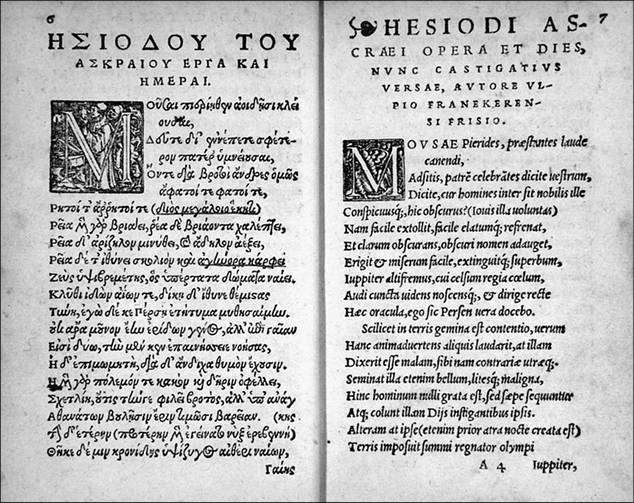 6
ΗΣΙΟΔΟΥ ΤΟΥ
ΑΣΚΡΑΙΟΥ ΕΡΓΑ ΚΑΙ
ΗΜΕΡΑΙ.
Μοῦσαι πιερίηθεν ἀοιδῇσι κλεί
ουσαι,
Δεῦτε δὴ ἐννέπετε σφέτε-
ρον πατέρ' ὑμνείουσαι,
Ὅντε διὰ βροτοὶ ἄνδρες ὁμῶς
ἄφατοί τε φατοί τε,
Ρητοί τ' ἄρρητοί τε (διὸς μεγάλοιο ἕκητι)
Ρεῖα μὲν γὰρ βριάει, ῥέα δὲ βριάοντα χαλέπτει,
Ρεῖα δ' ἀρίζηλον μινύθει, καὶ ἄδηλον ἀέξει,
Ρεῖα δέ τ' ἰθύνει σκολιὸν καὶ ἀγήνορα κάρφει
Ζεὺς ὑψιβρεμέτης, ὃς ὑπέρτατα δώματα ναίει.
Κλῦθι ἰδὼν ἀΐων τε, δίκῃ δ' ἴθυνε θέμιστας
Τύνη, ἐγὼ δέ κε Πέρσῃ ἐτήτυμα μυθησαίμην.
Οὐκ ἄρα μοῦνον ἔην ἐρίδων γένος, ἀλλ' ἐπὶ γαῖαν
Εἰσὶ δύω, τὴν μέν κεν ἐπαινήσειε νοήσας,
Η δ' ἐπιμωμητὴ, διὰ δ' ἄνδιχα θυμὸν ἔχουσιν.
Η μὲν γὰρ πόλεμόν τε κακὸν καὶ δῆριν ὀφέλλει,
Σχετλίη, οὔτις τήνγε φιλεῖ βροτὸς, ἀλλ' ὑπ' ἀνάγ
Αθανάτων βουλῇσιν ἔριν τιμῶσι βαρεῖαν. (κης
Τὴν δ' ἑτέρην (προτέρην μὲν ἐγείνατο νὺξ ἐρεβεννὴ)
Θῆκε δέ μιν κρονίδης ὑψίζυγος αἰθέρι ναίων,
Γαίης
7
HESIODI AS-
CRAEI OPERA ET DIES,
NVNC CASTIGATIVS
VERSAE, AVTORE VL-
PIO FRANEKEREN-
SI FRISIO.
MOVSAE Pierides, præstantes laude
canendi,
Adsitis, patrē celebrātes dicite uestrum,
Dicite, cur homines inter sit nobilis ille
Conspicuusq;, hic obscurus? (Iouis illa uoluntas)
Nam facile extollit, facile elatumq; refrenat,
Et clarum obscurans, obscuri nomen adauget,
Erigit & miserum facile, extinguitq; superbum,
Iuppiter altifremus, cui celsum regia cœlum,
Audi cuncta uidens noscensq;, & dirige recte
Hæc oracula, ego sic Persen uera docebo.
Scilicet in terris gemina est contentio, uerum
Hanc animaduertens aliquis laudarit, at illam
Dixerit esse malam, sibi nam contrariæ utræq;.
Seminat illa etenim bellum, litesq; maligna,
Hinc hominum nulli grata est, sed sæpe sequuntur
Atq; colunt illam Dijs instigantibus ipsis.
Alteram at ipse (etenim prior atra nocte creata est)
Terris imposuit summi regnator olympi
A 4 Iuppiter,